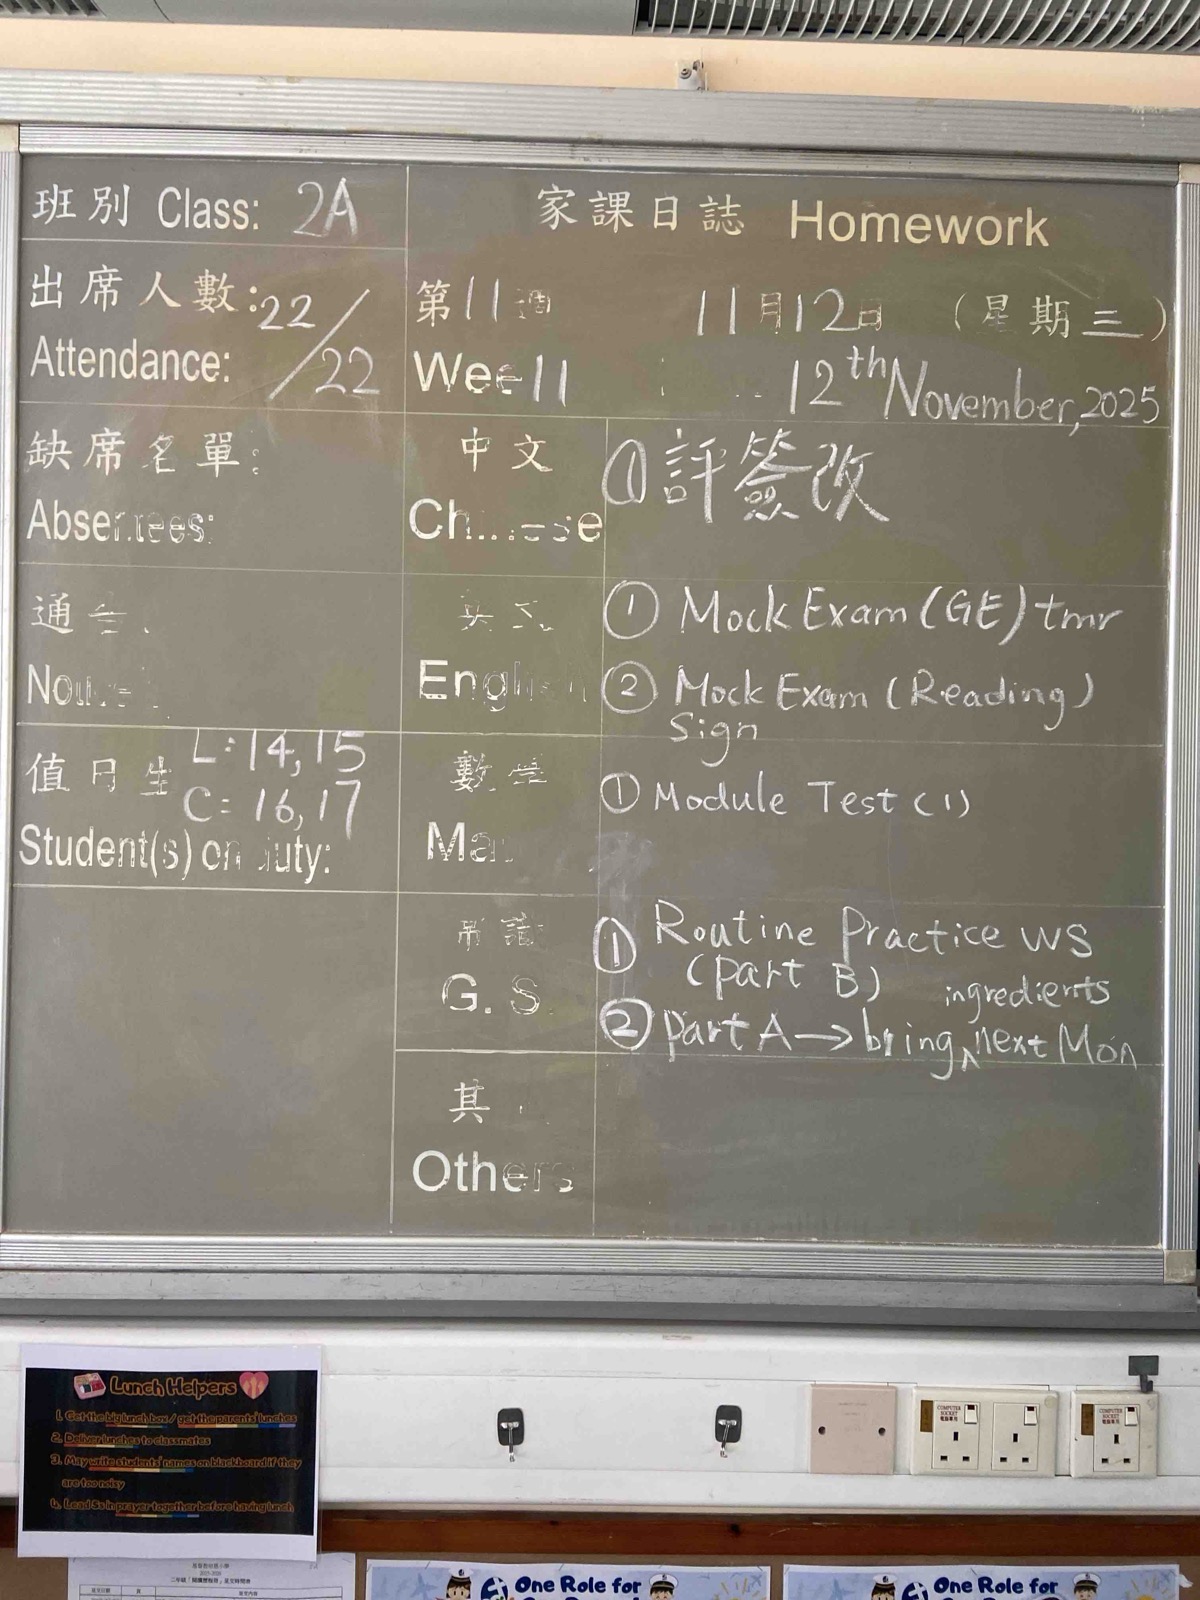 班別 Class: 2A
家課日誌 Homework
出席人數:22/22
Attendance:
第11週 11月12日 (星期三)
Wee11 12th November, 2025
缺席名單:
Absentees:
中文
Chinese
① 評簽改
通告
英文
English
① Mock Exam (GE) tmr
② Mock Exam (Reading)
Sign
值日生 L:14,15
C:16,17
Student(s) on duty:
數學
Ma
① Module Test (1)
常識
G. S.
① Routine Practice WS
(part B)
ingredients
② part A → bring ^ next Mon
其
Others
Lunch Helpers
1. Get the big lunch box / get the parents' lunches
2. Deliver lunches to classmates
3. May write students' names on blackboard if they
are too noisy
4. Lead Ss in prayer together before having lunch
COMPUTER
SOCKET
電腦專用
COMPUTER
SOCKET
電腦專用
2025-2026
One Role for
One Role for